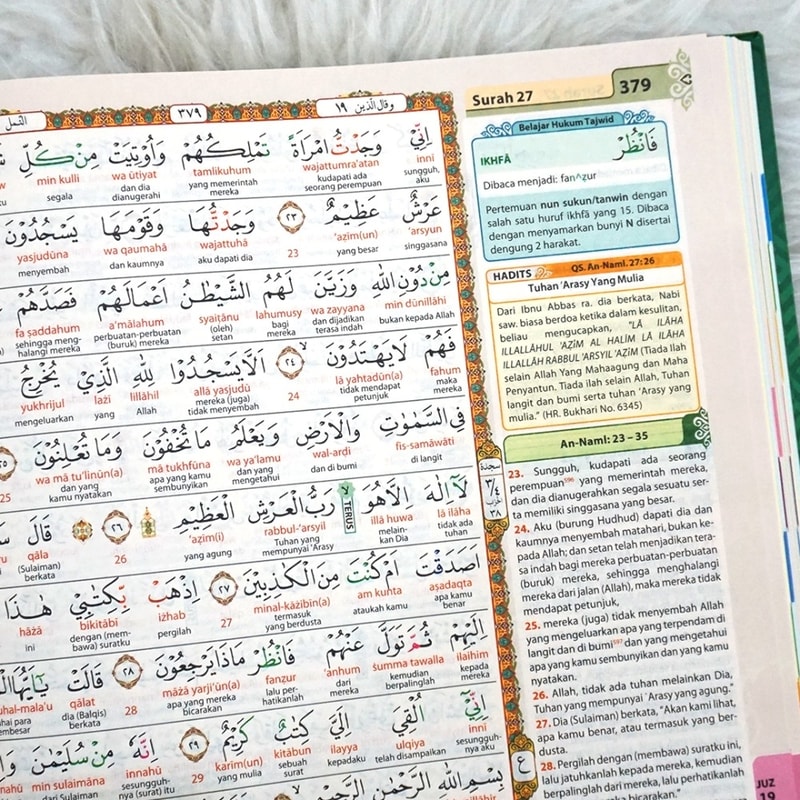 Surah 27
379
النمل
٣٧٩
وقال الذين ١٩
اِنِّيْ وَجَدْتُّ امْرَاَةً تَمْلِكُهُمْ وَاُوْتِيَتْ مِنْ كُلِّ
inni wajattumra'atan tamlikuhum wa ūtiyat min kulli
sungguh, aku kudapati ada seorang perempuan yang memerintah mereka dan dia dianugerahi segala
عَرْشٌ عَظِيْمٌ ٢٣ وَجَدْتُّهَا وَقَوْمَهَا يَسْجُدُوْنَ
'arsyun 'aẓīm(un) 23 wajattuhā wa qaumahā yasjudūna
singgasana yang besar aku dapati dia dan kaumnya menyembah
مِنْ دُوْنِ اللّٰهِ وَزَيَّنَ لَهُمُ الشَّيْطٰنُ اَعْمَالَهُمْ فَصَدَّهُمْ
min dūnillāhi wa zayyana lahumusy syaiṭānu a'mālahum fa ṣaddahum
bukan kepada Allah dan dijadikan terasa indah bagi mereka (oleh) setan perbuatan-perbuatan (buruk) mereka sehingga menghalangi mereka
فَهُمْ لَا يَهْتَدُوْنَ ٢٤ اَلَّا يَسْجُدُوْا لِلّٰهِ الَّذِيْ يُخْرِجُ
fahum lā yahtadūn(a) 24 allā yasjudū lillāhil lażī yukhrijul
maka mereka tidak mendapat petunjuk mereka (juga) tidak menyembah Allah yang mengeluarkan
فِى السَّمٰوٰتِ وَالْاَرْضِ وَيَعْلَمُ مَا تُخْفُوْنَ وَمَا تُعْلِنُوْنَ ٢٥
fis-samāwāti wal-arḍi wa ya'lamu mā tukhfūna wa mā tu'linūn(a) 25
di langit dan di bumi dan yang mengetahui apa yang kamu sembunyikan dan yang kamu nyatakan
لَآ اِلٰهَ اِلَّا هُوَ رَبُّ الْعَرْشِ الْعَظِيْمِ ٢٦ قَالَ
lā ilāha illā huwa TERUS rabbul-'arsyil 'aẓīm(i) 26 qāla
tidak ada tuhan melainkan Dia Tuhan yang mempunyai 'Arasy yang agung (Sulaiman) berkata
اَصَدَقْتَ اَمْ كُنْتَ مِنَ الْكٰذِبِيْنَ ٢٧ اِذْهَبْ بِّكِتٰبِيْ هٰذَا
aṣadaqta am kunta minal-kāżibīn(a) 27 iżhab bikitābī hāżā
apa kamu benar ataukah kamu termasuk yang berdusta pergilah dengan (membawa) suratku ini
اِلَيْهِمْ ثُمَّ تَوَلَّ عَنْهُمْ فَانْظُرْ مَاذَا يَرْجِعُوْنَ ٢٨ قَالَتْ
ilaihim ṡumma tawalla 'anhum fanẓur māżā yarji'ūn(a) 28 qālat
kepada mereka kemudian berpalinglah dari mereka lalu perhatikanlah apa yang mereka bicarakan dia (Balqis) berkata
اِنِّيْٓ اُلْقِيَ اِلَيَّ كِتٰبٌ كَرِيْمٌ ٢٩ اِنَّهٗ مِنْ سُلَيْمٰنَ
innī ulqiya ilayya kitābun karīm(un) 29 innahū min sulaimāna
sesungguhnya aku telah disampaikan kepadaku sebuah surat yang mulia sesungguhnya (surat) itu dari Sulaiman
بِسْمِ اللّٰهِ الرَّحْمٰنِ الرَّحِيْمِ
سجدة
٣/٤
حزب
٣٨
ع
Belajar Hukum Tajwid
IKHFĀ
فَانْظُرْ
Dibaca menjadi: fan^ẓur
Pertemuan nun sukun/tanwin dengan
salah satu huruf ikhfā yang 15. Dibaca
dengan menyamarkan bunyi N disertai
dengung 2 harakat.
HADITS
QS. An-Naml. 27:26
Tuhan 'Arasy Yang Mulia
Dari Ibnu Abbas ra. dia berkata, Nabi
saw. biasa berdoa ketika dalam kesulitan,
beliau mengucapkan, "LĀ ILĀHA
ILLALLĀHUL 'AẒĪM AL HALĪM LĀ ILĀHA
ILLALLĀH RABBUL 'ARSYIL 'AẒĪM (Tiada Ilah
selain Allah Yang Mahaagung dan Maha
Penyantun. Tiada ilah selain Allah, Tuhan
langit dan bumi serta tuhan 'Arasy yang
mulia." (HR. Bukhari No. 6345)
An-Naml: 23 – 35
23. Sungguh, kudapati ada seorang
perempuan yang memerintah mereka,
dan dia dianugerahi segala sesuatu ser-
ta memiliki singgasana yang besar.
24. Aku (burung Hudhud) dapati dia dan
kaumnya menyembah matahari, bukan ke-
pada Allah; dan setan telah menjadikan tera-
sa indah bagi mereka perbuatan-perbuatan
(buruk) mereka, sehingga menghalangi
mereka dari jalan (Allah), maka mereka tidak
mendapat petunjuk,
25. mereka (juga) tidak menyembah Allah
yang mengeluarkan apa yang terpendam di
langit dan di bumi dan yang mengetahui
apa yang kamu sembunyikan dan yang kamu
nyatakan.
26. Allah, tidak ada tuhan melainkan Dia,
Tuhan yang mempunyai 'Arasy yang agung."
27. Dia (Sulaiman) berkata, "Akan kami lihat,
apa kamu benar, atau termasuk yang ber-
dusta.
28. Pergilah dengan (membawa) suratku ini,
lalu jatuhkanlah kepada mereka, kemudian
berpalinglah dari mereka, lalu perhatikanlah
apa yang mereka bicarakan."
JUZ
19